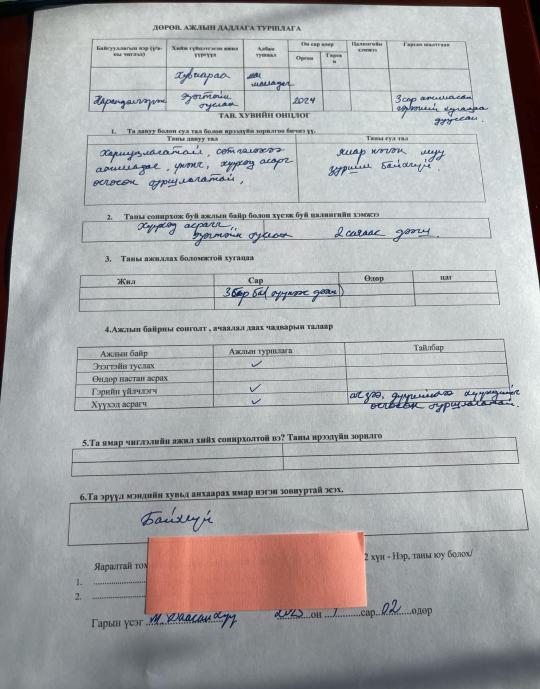 ДӨРӨВ. АЖЛЫН ДАДЛАГА ТУРШЛАГА
Байгууллагын нэр (үйл
Хийж гүйцэтгэсэн ажил үүргүүд
Албан тушаал
Он сар өдөр
Цалингийн хэмжээ
Гарсан шалтгаан
Орсон
Гарсан
Хувиараа
менежер
Эзэгтэйн туслах
2024
3 сар ажилласан
гэрээний хугацаа
дууссан.
ТАВ. ХУВИЙН ОНЦЛОГ
1. Та давуу болон сул тал болон ирээдүйн зорилгоо бичнэ үү.
Таны давуу тал
Таны сул тал
Хариуцлагатай, сэтгэлээсээ
ажилладаг, үнэнч, хүүхэд асарч
өсгөсөн туршлагатай,
ямар нэгэн муу
зуршил байхгүй.
2. Таны сонирхож буй ажлын байр болон хүсэж буй цалингийн хэмжээ
Хүүхэд асрагч,
Эзэгтэйн туслах 2 саяаас дээш
3. Таны ажиллах боломжтой хугацаа
Жил Сар Өдөр цаг
4.Ажлын байрны сонголт , ачаалал даах чадварын талаар
Ажлын байр Ажлын туршлага Тайлбар
Эзэгтэйн туслах ✓
Өндөр настан асрах
Гэрийн үйлчлэгч ✓
Хүүхэд асрагч ✓
өсгөсөн туршлагатай.
5.Та ямар чиглэлийн ажил хийх сонирхолтой вэ? Таны ирээдүйн зорилго
6.Та эрүүл мэндийн хувьд анхаарах ямар нэгэн зовиуртай эсэх.
Байхгүй
Яаралтай 2 хүн - Нэр, таны юу болох/
1.
2.
Гарын үсэг 2025 он 7 сар 02 өдөр